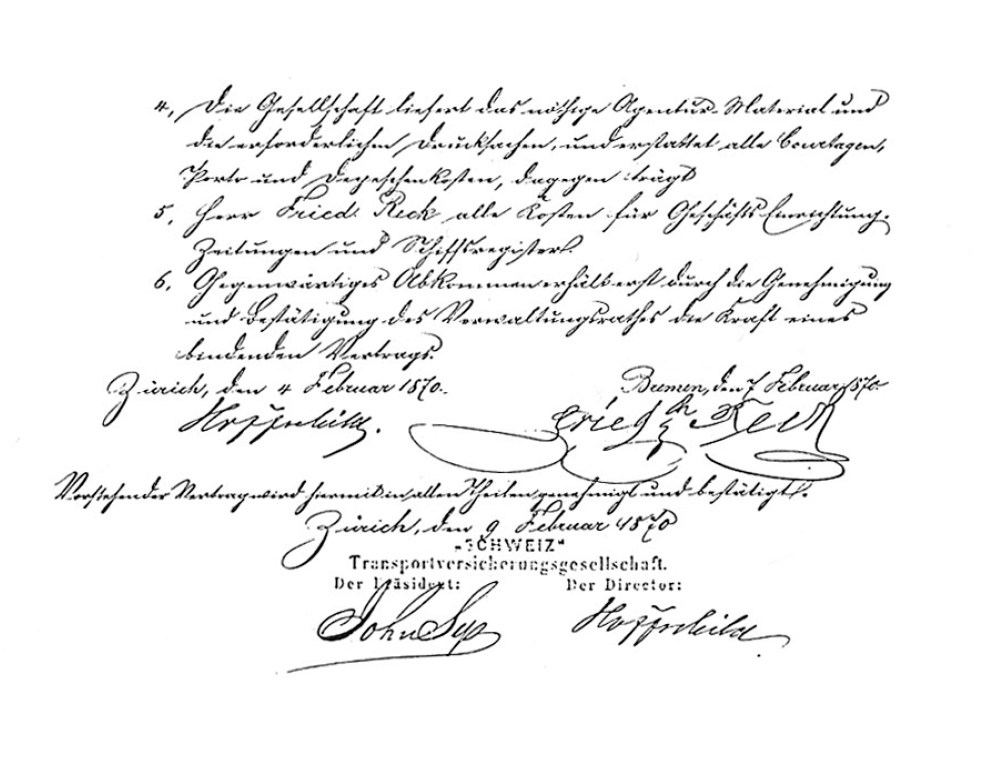 4, Die Gesellschaft liefert das nöthige Agentur-Material und
die erforderlichen Drucksachen, und erstattet alle Courtagen,
Porti und Depeschenkosten, dagegen trägt
5, Herr Fried. Reck alle Kosten für Geschäfts Einrichtung,
Zeitungen und Schiffsregister.
6, Gegenwärtiges Abkommen erhält erst durch die Genehmigung
und Bestätigung des Verwaltungsrathes die Kraft eines
bindenden Vertrags.
Zürich, den 4 Februar 1870.
Bremen, den 7 Februar 1870
Friedch Reck
Vorstehender Vertrag wird hiermit in allen Theilen genehmigt und bestätigt.
Zürich, den 9 Februar 1870
"SCHWEIZ"
Transportversicherungsgesellschaft.
Der Präsident: Der Director:
John Syz